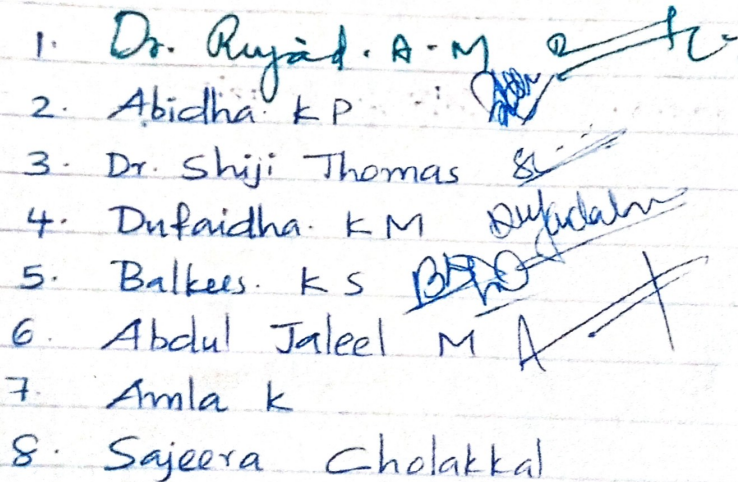 1. Dr. Rujad. A-M
2. Abidha KP
3. Dr. Shiji Thomas
4. Dufaidha. KM
5. Balkees. K S
6. Abdul Jaleel M
7. Amla K
8. Sajeera Cholakkal